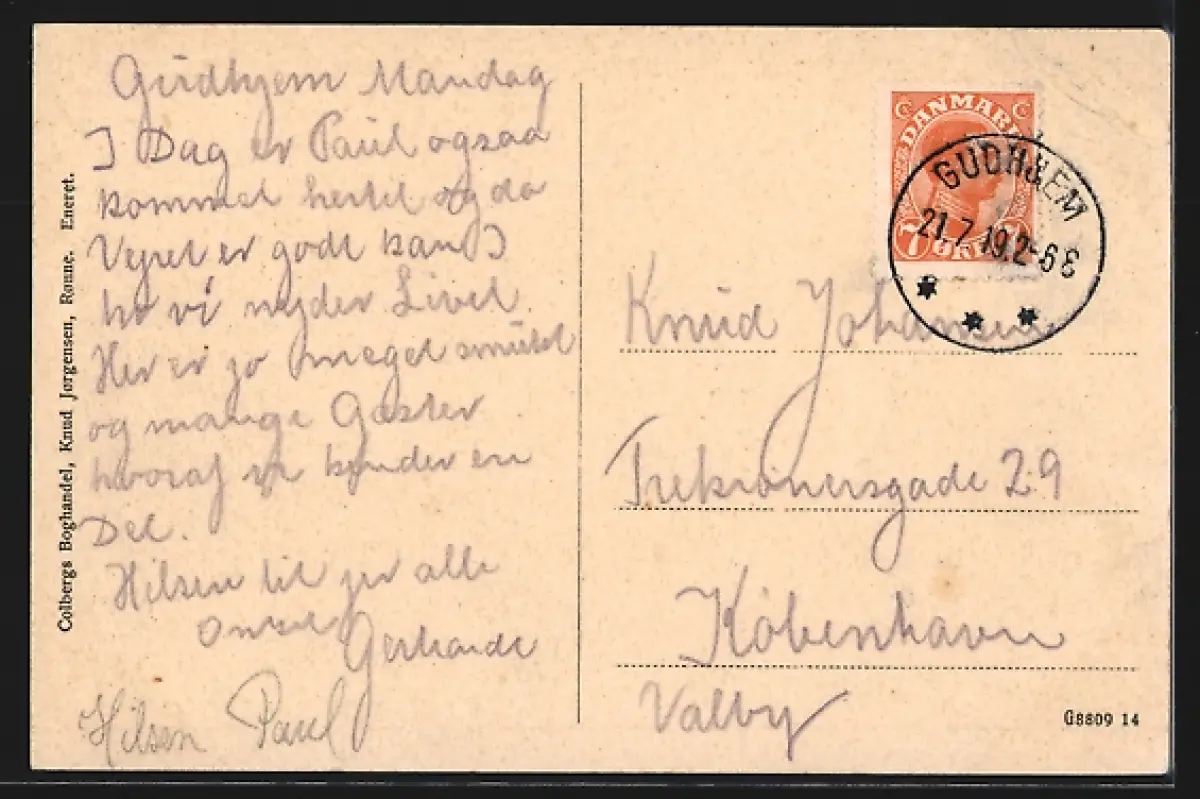 Gudhjem Mandag
I Dag er Paul ogsaa
kommet hertil og da
Vejret er godt kan I
tro vi nyder Livet
Her er jo meget smukt
og mange Gæster
hvoraf vi kender en
Del.
Hilsen til jer alle
Onkel
Gerhardt
Hilsen Paul
Colbergs Boghandel, Knud Jørgensen, Rønne. Eneret.
DANMARK
7 ØRE 7
GUDHJEM
21.7.19.2-6 E
Knud Johansen
Trekronersgade 29
København
Valby
G8809 14